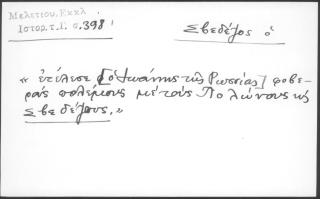 Μελετίου, Εκκλ
Ιστορ. τ. Γ. σ. 398
Σβεδέζος ὁ
« ἐτέλεσε [ὁ Ἰωάννης τῆς Ρωσσίας] φοβε-
ροὺς πολέμους μὲ τοὺς Πολώνους κ
Σβεδέζους. »